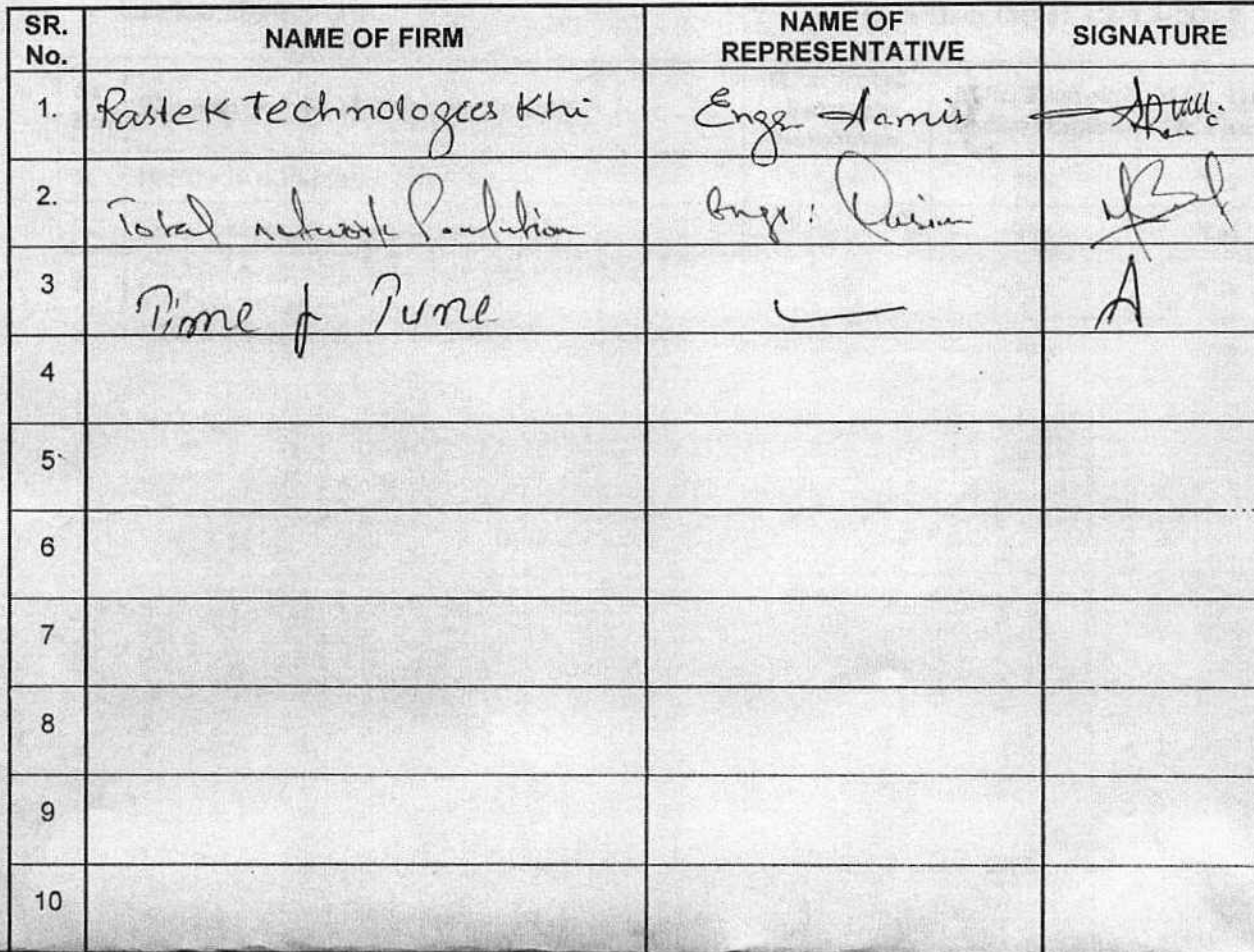 SR. No. NAME OF FIRM NAME OF REPRESENTATIVE SIGNATURE
1. Rastek technologies Khi Engr Aamir
2. Total network Engr:
3 Time & Tune
4
5
6
7
8
9
10